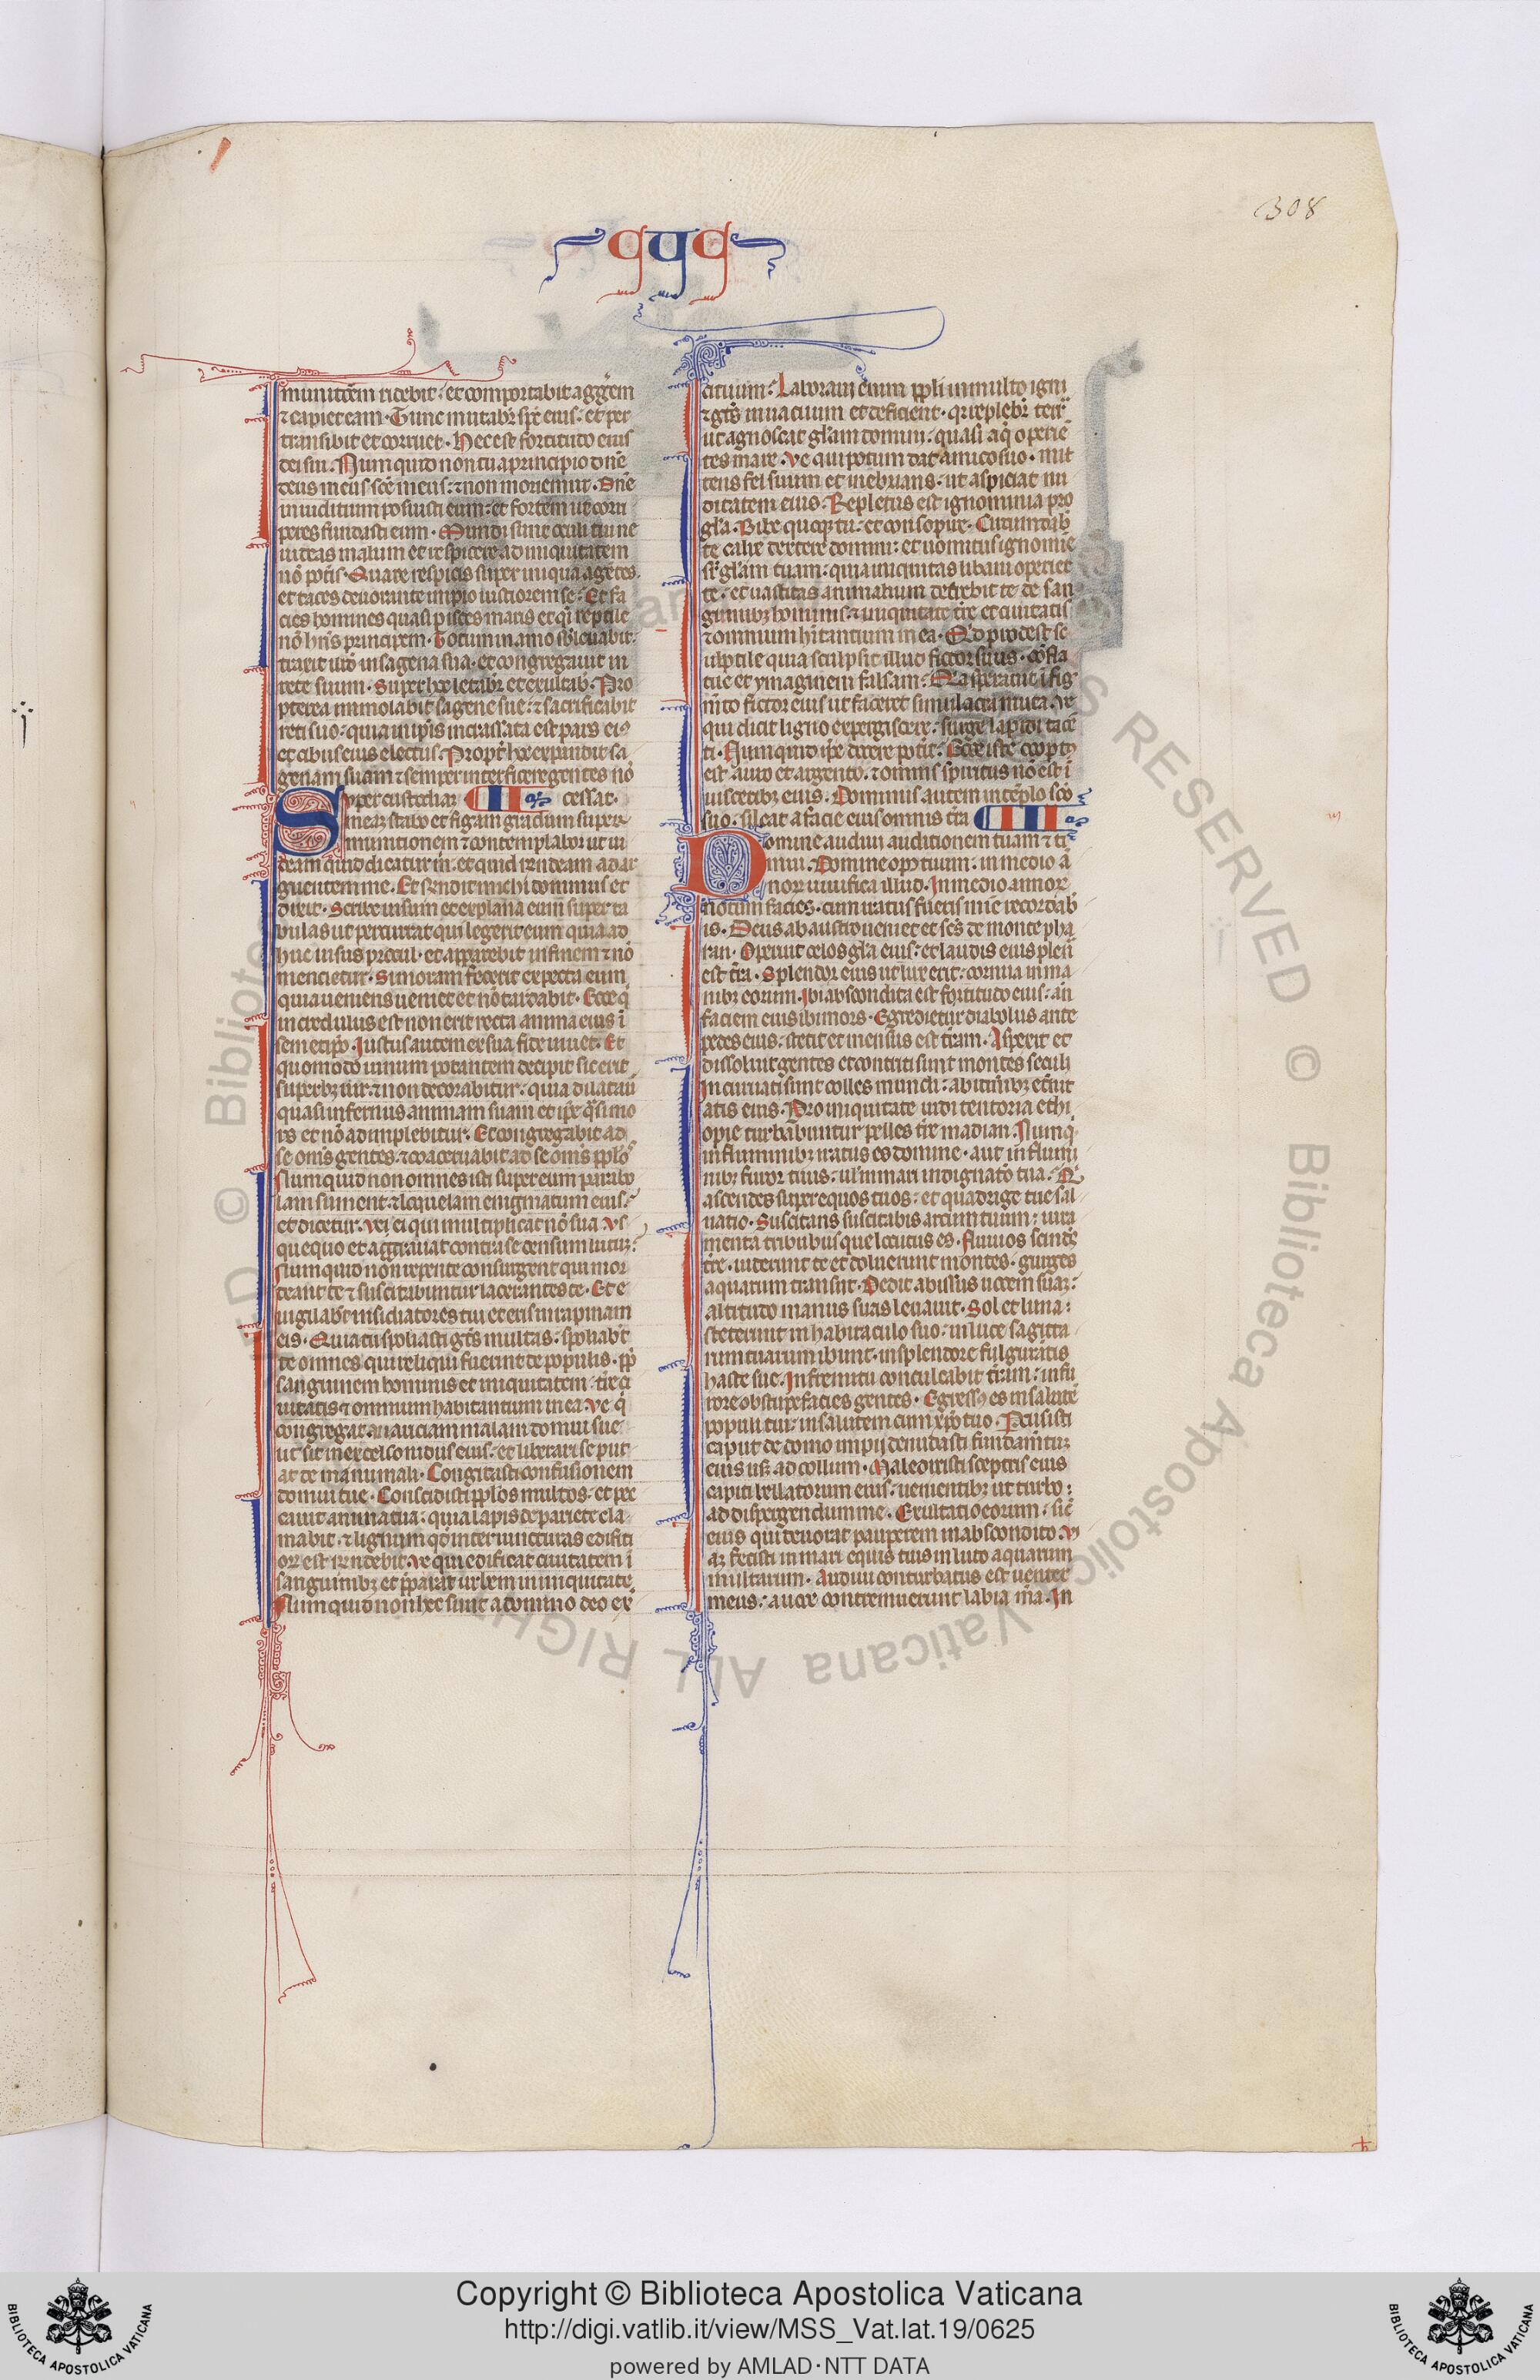 308
munitōem ridebit: et comportabit aggēem
⁊ capiet eam. Tunc mutabit᷑ sp̄c eius: et per
transibit et corruet. Hec est fortitudo eius
dei sui. Numquid non tu a principio dn̄e
deus meus sc̄e meus: ⁊ non moriemur. Dn̄e
in iuditium posuisti eum: et fortem ut corri
peres fundasti eum. Mundi sunt oculi tui ne
uideas malum et respicere ad iniquitatem
nō potis. Quare respicis super iniqua agētes.
et taces deuorante impio iustiorem se: Et fa
cies homines quasi pisces maris et qi reptile
nō hn̄s principem. Totum in amo sb̄leuabit:
traxit illd̄ in sagena sua. et congregauit in
rete suum. Super hoc letabit᷑ et exultab. Pro
pterea immolabit sagene sue: ⁊ sacrificabit
reti suo: quia in ip̄is incrassata est pars ei9
et cibus eius electus. Propt̄ hoc expandit sa
genam suam ⁊ semper interficere gentes nō
Super custodiaꝫ cessat.
meaꝫ stabo et figam gradum super
munitionem ⁊ contemplabor ut ui
deam quid dicatur m̄. et quid rn̄deam ad ar
guentem me. Et rn̄dit michi dominus et
dixit. Scribe uisum et explana eum super ta
bulas ut percurrat qui legerit eum quia ad
huc uisus procul. et apparebit in finem ⁊ nō
mencietur. Si moram fecerit expecta eum
quia ueniens ueniet et nō tardabit. Ecce q̇
incredulus est non erit recta anima eius ī
semetip̄o. Iustus autem ex sua fide uiuet. Et
quomodo uinum potantem decipit sic erit
superbꝫ uir ⁊ non decorabitur: quia dilatau̅
quasi infernus animam suam et ip̄e q̄si mo
rs et nō adimplebitur. Et congregabit ad
se omīs gentes. ⁊ coaceruabit ad se omīs ppl̄os
Numquid non omnes isti super eum parabo
lam sument. ⁊ loquelam enigmatum eius:
et dicetur. Ve ei qui multiplicat nō sua. Vs
quequo et aggrauat contra se densum lutuꝫ:
Numquid non repente consurgent qui mor
deant te ⁊ suscitabuntur lacerantes te. Et e
uigilabt̄ insidiatores tui et eris in rapinam
eis. Quia tu spoliasti gēs multas: spoliabt̄
te omnes qui reliqui fuerint de populis. pp̄
sanguinem hominis et iniquitatem tr̄e ci
uitatis ⁊ omnium habitantium in ea. Ve q̇
congregat auariciam malam domui sue
ut sit in excelso nidus eius. et liberari se put
at de manu mali. Cogitasti confusionem
domui tue. Conscidisti ppl̄os multos. et pec
cauit anima tua: quia lapis de pariete cla
mabit. ⁊ lignum qd̄ inter iuncturas edifiti
oꝝ est rn̄debit. Ve qui edificat ciuitatem ī
sanguinibꝫ et p̄parat urbem in iniquitate
Numquid non hec sunt a domino deo exͣ
cituum: Laborant enim ppl̄i in multo igni
⁊ gēs in uacuum et deficient. qr replebit᷑ terr̄
ut agnoscat gl̄am domini: quasi aq̄ operiē
tes mare. Ve qui potum dat amico suo. mit
tens fel suum et inebrians. ut aspiciat nu
ditatem eius. Repletus est ignominia pro
gl̄a. Bibe quoqꝫ tu: et consopire. Circundab̄
te calix dextere domini: et uomitus ignomīe
sr̄ gl̄am tuam: quia iniquitas libani operiet
te. et uastitas animalium deterrebit te de san
guinibꝫ hominis. ⁊ iniquitate tr̄e et ciuitatis
⁊ omnium hītantium in ea. Qd̄ prodest sc
ulptile quia sculpsit illud fictor suus. cōfla
tile et ymaginem falsam: Quia sperauit ī fig
mento fictor eius ut faceret simulacra muta. Ve
qui dicit ligno expergiscere: surge lapidi tacē
ti. Numquid ip̄e docere pot̄it: Ecce iste coopt9
est auro et argento. ⁊ omnis spiritus nō est ī
uisceribꝫ eius. Dominus autem in tēplo sc̄o
suo. sileat a facie eius omnis tr̄a
Domine audiui auditionem tuam ⁊ ti
mui. Domine opus tuum: in medio ā
noꝝ uiuifica illud. In medio annoꝝ
notum facies. cum iratus fueris mīe recordab̄
is. Deus ab austro ueniet et sc̄s de monte pha
ran. Operuit celos gl̄a eius: et laudis eius plen̄
est tr̄a. Splendor eius ut lux erit: cornua in ma
nibꝫ eorum. Ibi abscondita est fortitudo eius: an̄
faciem eius ibi mors. Egredietur diabolus ante
pedes eius. stetit et mensus est tr̄am. Aspexit et
dissoluit gentes et contriti sunt montes seculi
Incuruati sunt colles mundi: ab itineribꝫ et̄nit
atis eius. Pro iniquitate uidi tentoria ethi
opie turbabuntur pelles tr̄e madian. Numq̇
in fluminibꝫ iratus es domine. aut in flumi
nibꝫ furor tuus: ul̄ in mari indignatō tua. Q̇
ascendes super equos tuos: et quadrige tue sal
uatio. Suscitans suscitabis arcum tuum: iura
menta tribubus que locutus es. Fluuios scindēs
tr̄e. uiderunt te et doluerunt montes. gurges
aquarum transiit. Dedit abissus uocem suaꝫ:
altitudo manus suas leuauit. Sol et luna:
steterunt in habitaculo suo: in luce sagitta
rum tuarum ibunt. in splendore fulguratis
haste sue. In fremitu conculcabit tr̄am: in fu
rore obstupefacies gentes. Egress9 es in salutē
populi tui: in salutem cum xp̄o tuo. Percussisti
caput de domo impij denudasti fundam̄tuꝫ
eius usqꝫ ad collum. Maledixisti sceptris eius
capiti bellatorum eius: uenientibꝫ ut turbo:
ad dispergendum me. Exultatio eorum: sic̄
eius qui deuorat pauperem in abscondito. Vi
aꝫ fecisti in mari equis tuis in luto aquarum
multarum. Audiui conturbatus est uenter
meus: a uoce contremuerunt labia m̄a. In
Copyright © Biblioteca Apostolica Vaticana
http://digi.vatlib.it/view/MSS_Vat.lat.19/0625
powered by AMLAD·NTT DATA